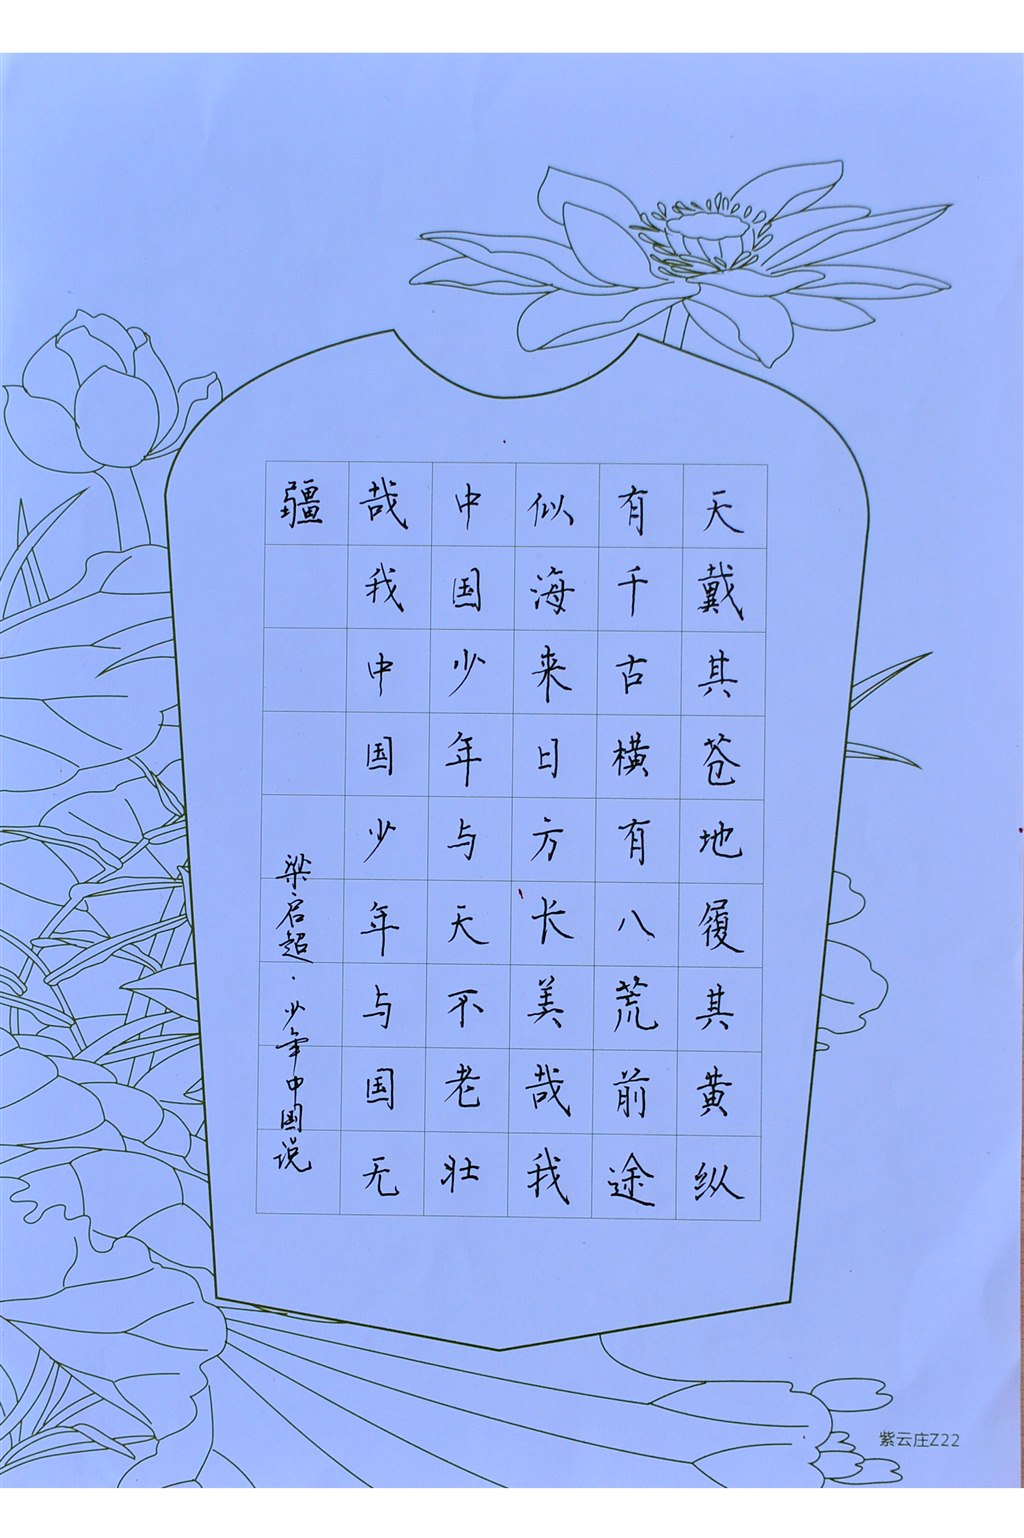 天戴其苍地履其黄纵
有千古横有八荒前途
似海来日方长美哉我
中国少年与天不老壮
哉我中国少年与国无
疆
梁启超·少年中国说
紫云庄Z22